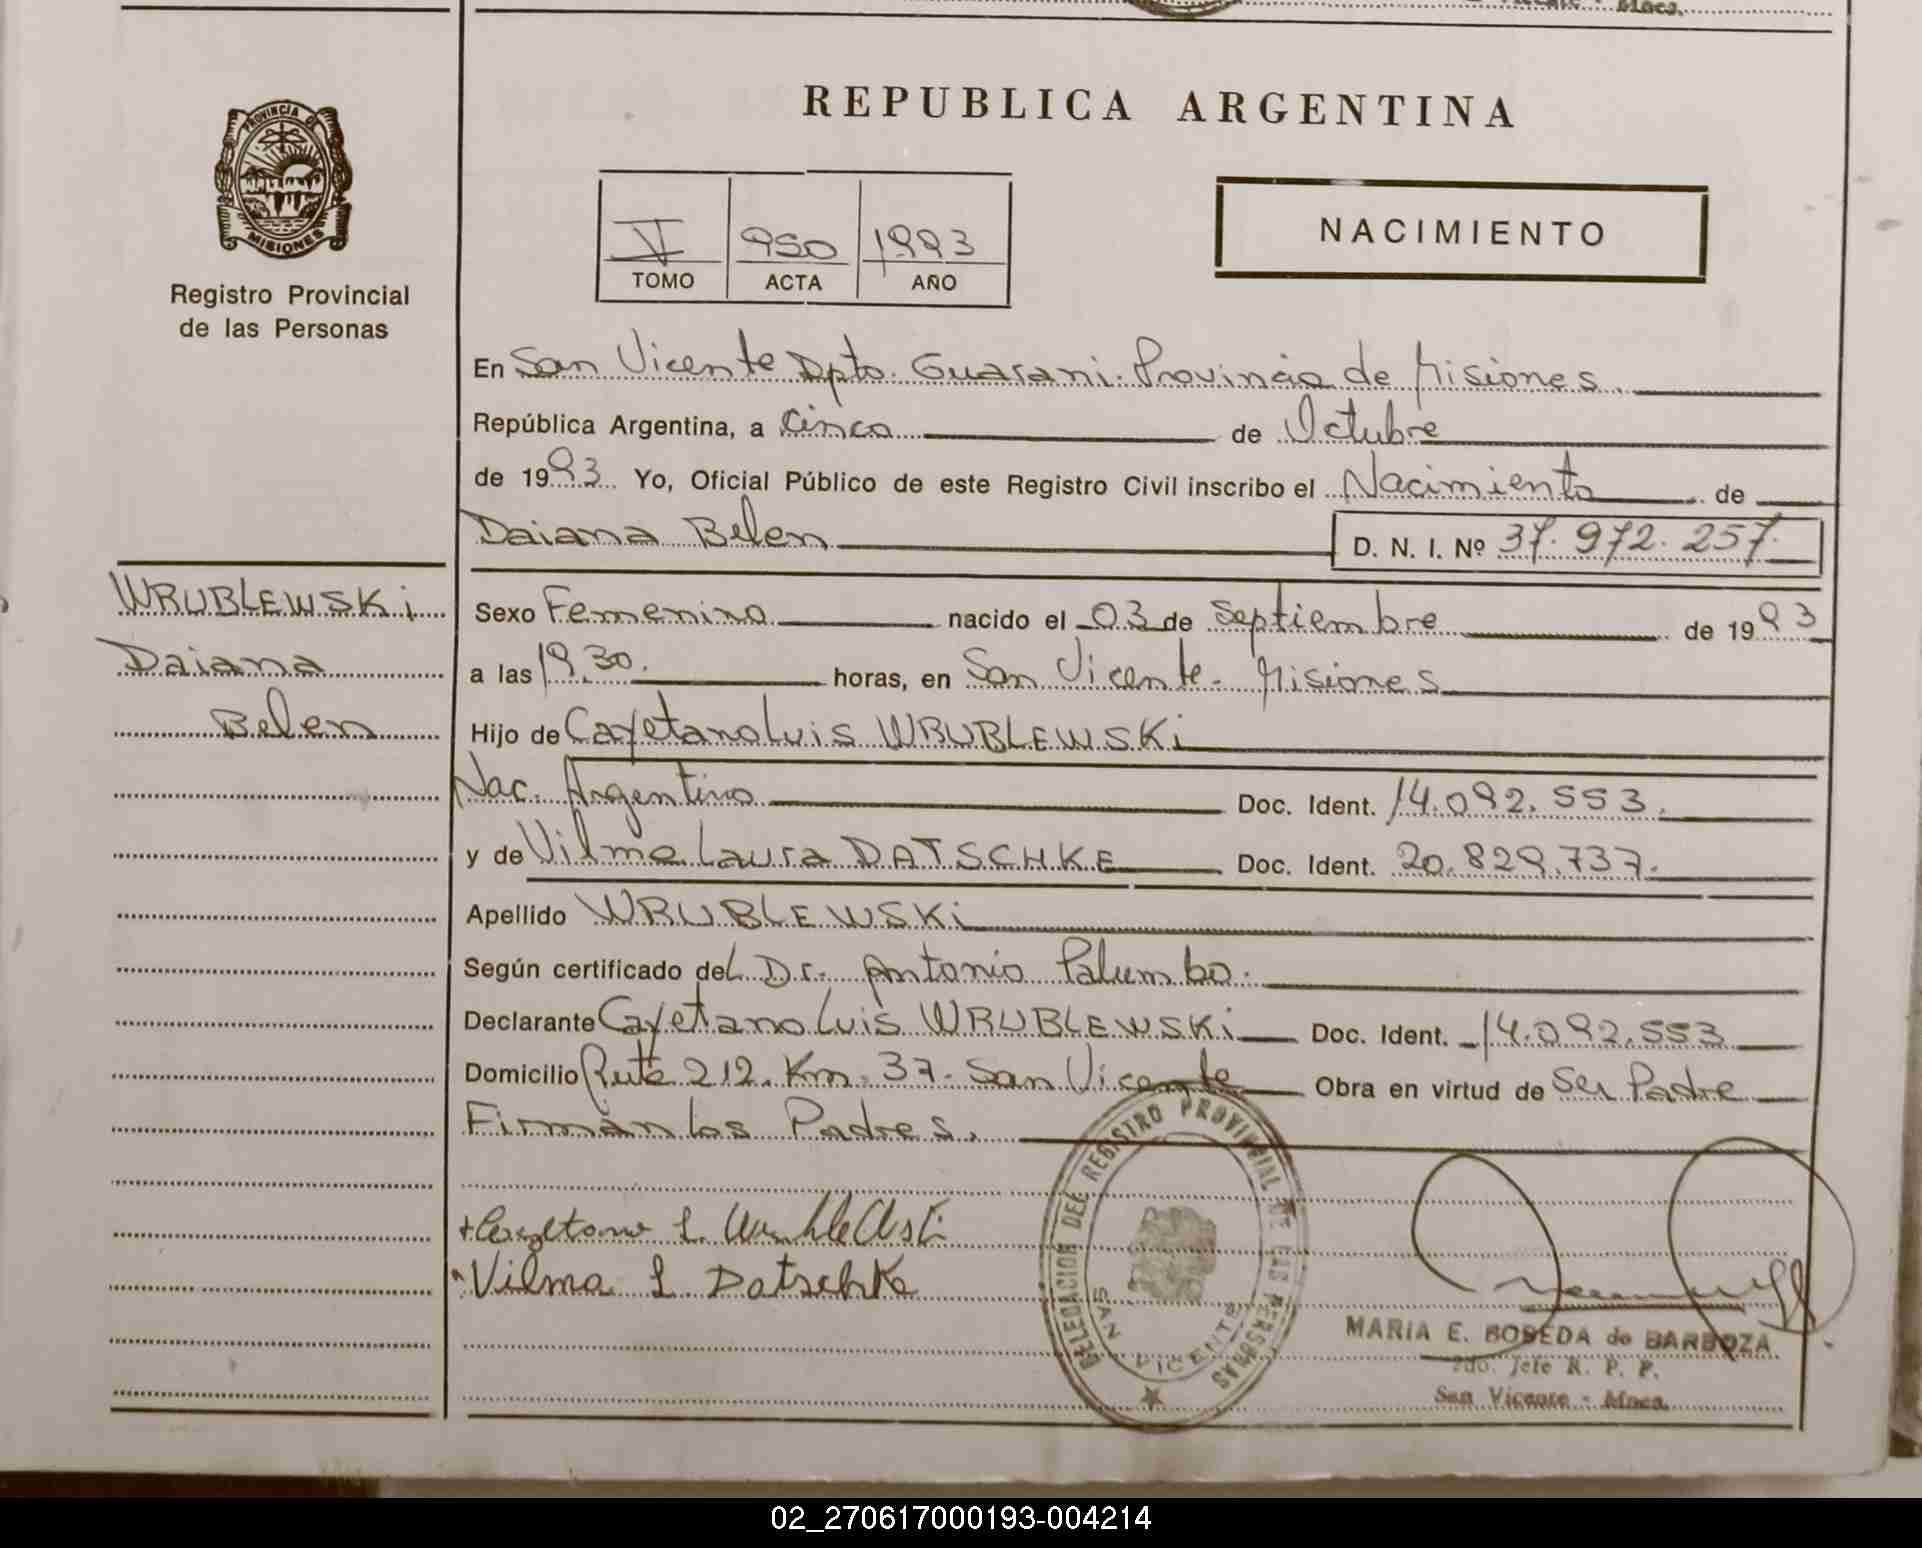 REPUBLICA ARGENTINA
PROVINCIA DE
MISIONES
Registro Provincial
de las Personas
V 950 1993
TOMO ACTA AÑO
NACIMIENTO
En San Vicente Dpto. Guarani. Provincia de Misiones.
República Argentina, a cinco de Octubre
de 1993 Yo, Oficial Público de este Registro Civil inscribo el Nacimiento de
Daiana Belen D. N. I. Nº 37.972.257.
WRUBLEWSKi
Daiana
Belen
Sexo Femenino nacido el 03 de Septiembre de 1993
a las 19,30. horas, en San Vicente - Misiones
Hijo de Cayetano Luis WRUBLEWSKi
Nac. Argentino Doc. Ident. 14.092.553.
y de Vilma Laura DATSCHKE Doc. Ident. 20.829.737.
Apellido WRUBLEWSKi
Según certificado del Dr. Antonio Palumbo.
Declarante Cayetano Luis WRUBLEWSKi Doc. Ident. 14.092.553
Domicilio Ruta 212. Km. 37. San Vicente Obra en virtud de Ser Padre
Firman los Padres.
Cayetano L. Wrublewski
Vilma L Datschke
DELEGACION DEL REGISTRO PROVINCIAL DE LAS PERSONAS
SAN VICENTE
MARIA E. BOBEDA de BARBOZA
2do. Jefe R. P. P.
San Vicente - Mnes.
02_270617000193-004214